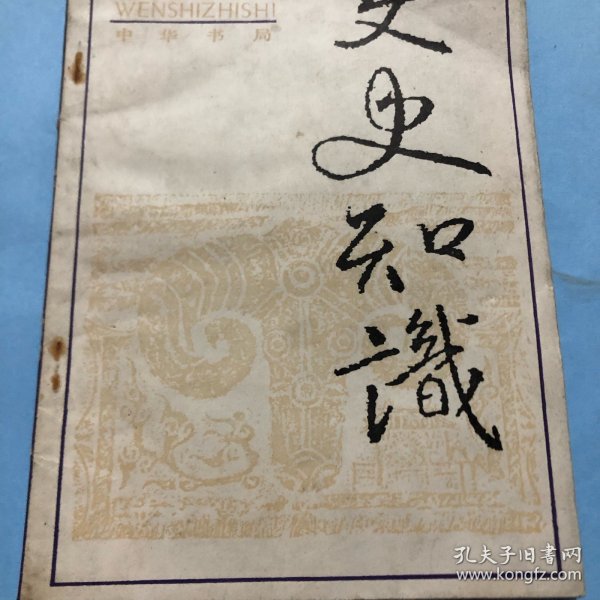 WENSHIZHISHI
中华书局
文史知識
孔夫子旧书网
www.kongfz.com